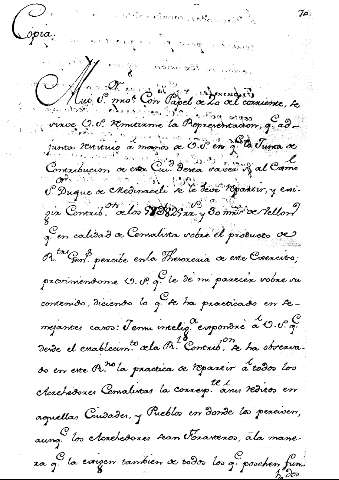 70.
Copia
Muy S.^or mio: Con Papel de 20 del corriente, se
sirve V.S. remitirme la Representacion, q.^e ad-
junta restituio á manos de V.S. en q.^e la Junta de
Contribucion de esta Ciu.^d desea saver si al Excmo
S.^or Duque de Medinaceli se le deve repartir, y exi-
gir Contrib.^on de los
q.^e en calidad de Censalista sobre el producto de
R.^tas Gen.^s percibe en la Thesoreria de este Exercito;
previniendome V.S. q.^e le dé mi parecer sobre su
contenido, diciendo lo q.^e se ha practicado en se-
mejantes casos: Y en su inteligª. expondré á V.S. q.^e
desde el establecim.^to de la R.^l Contrib.^on se ha observa-
do en este R.^no la practica de repartir á todos los
Acrehedores Censalistas la corresp.^te á sus reditos en
aquellas Ciudades, y Pueblos en donde los perciven,
aunq.^e los Acrehedores sean forasteros, á la mane-
ra q.^e la exigen tambien de todos los q.^e poschen fun-
dos